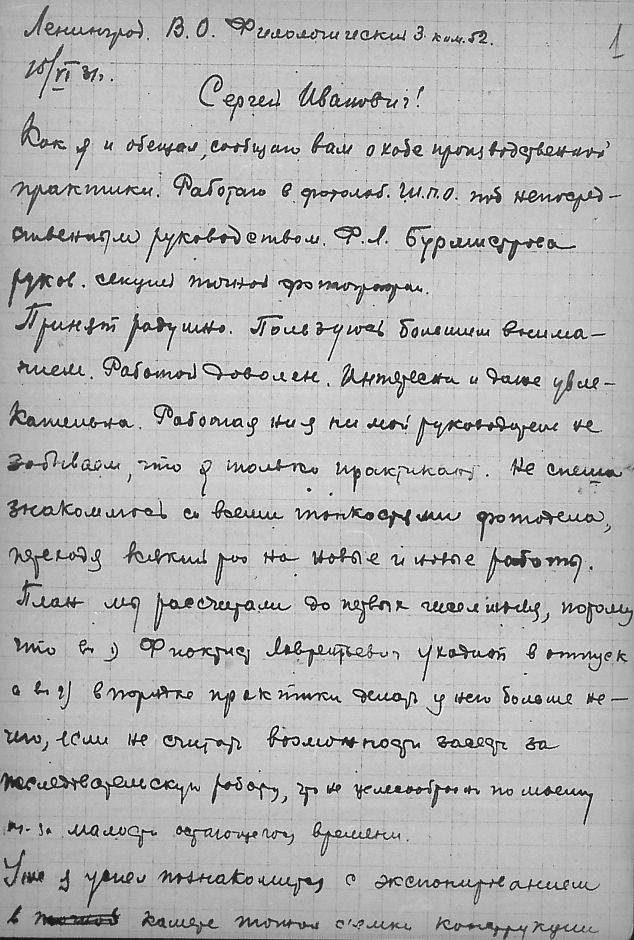 Ленинград. В. О. Филологический 3. ком. 52.
1
10/VI 31г.
Сергей Иванович!
Как я и обещал, сообщаю вам о ходе производственной
практики. Работаю в фотолаб. под непосред-
ственным руководством. Ф. Л. Бурмистрова
руков. секцией точной фотографии.
Принят радушно. Пользуюсь большим внима-
нием. Работой доволен. Интересна и даже увле-
кательна. Работая ни я ни мой руководитель не
забываем, что я только практикант. Не спеша
знакомлюсь со всеми тонкостями фотодела,
переходя всякий раз на новые и новые работы.
План мы рассчитали до первых чисел июля, потому
что во 1) Феоктист Лаврентьевич уходит в отпуск
а во 2) в порядке практики делать у него больше не-
чего, если не считать возможности засесть за
исследовательскую работу, что не целесообразно по моему
из-за малости остающегося времени.
Уже я успел познакомиться с экспонированием
в камере точной с'емки конструкции